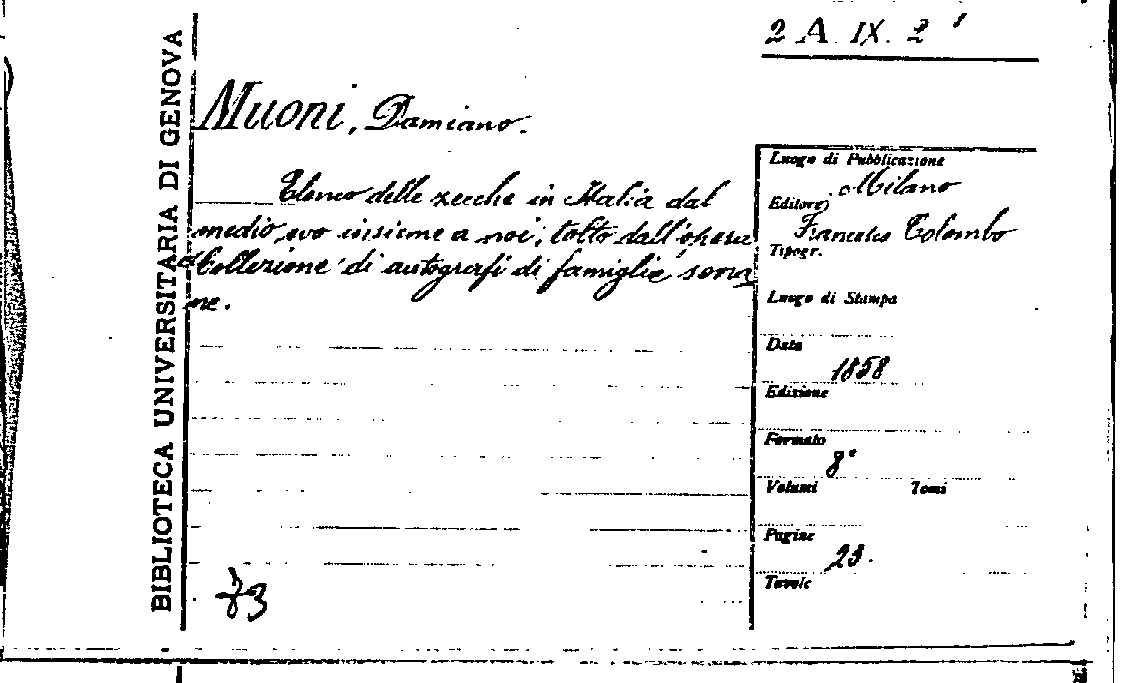 2 A IX. 2
BIBLIOTECA UNIVERSITARIA DI GENOVA
Muoni, Damiano.
Elenco delle zecche in Italia dal
medio evo insieme a noi, tolto dall'opera
"Collezione di autografi di famiglie sovra
ne.
Luogo di Pubblicazione
Milano
Editore
Francesco Colombo
Tipogr.
Luogo di Stampa
Data
1858
Edizione
Formato
8°
Volumi Tomi
Pagine
23.
Tavole